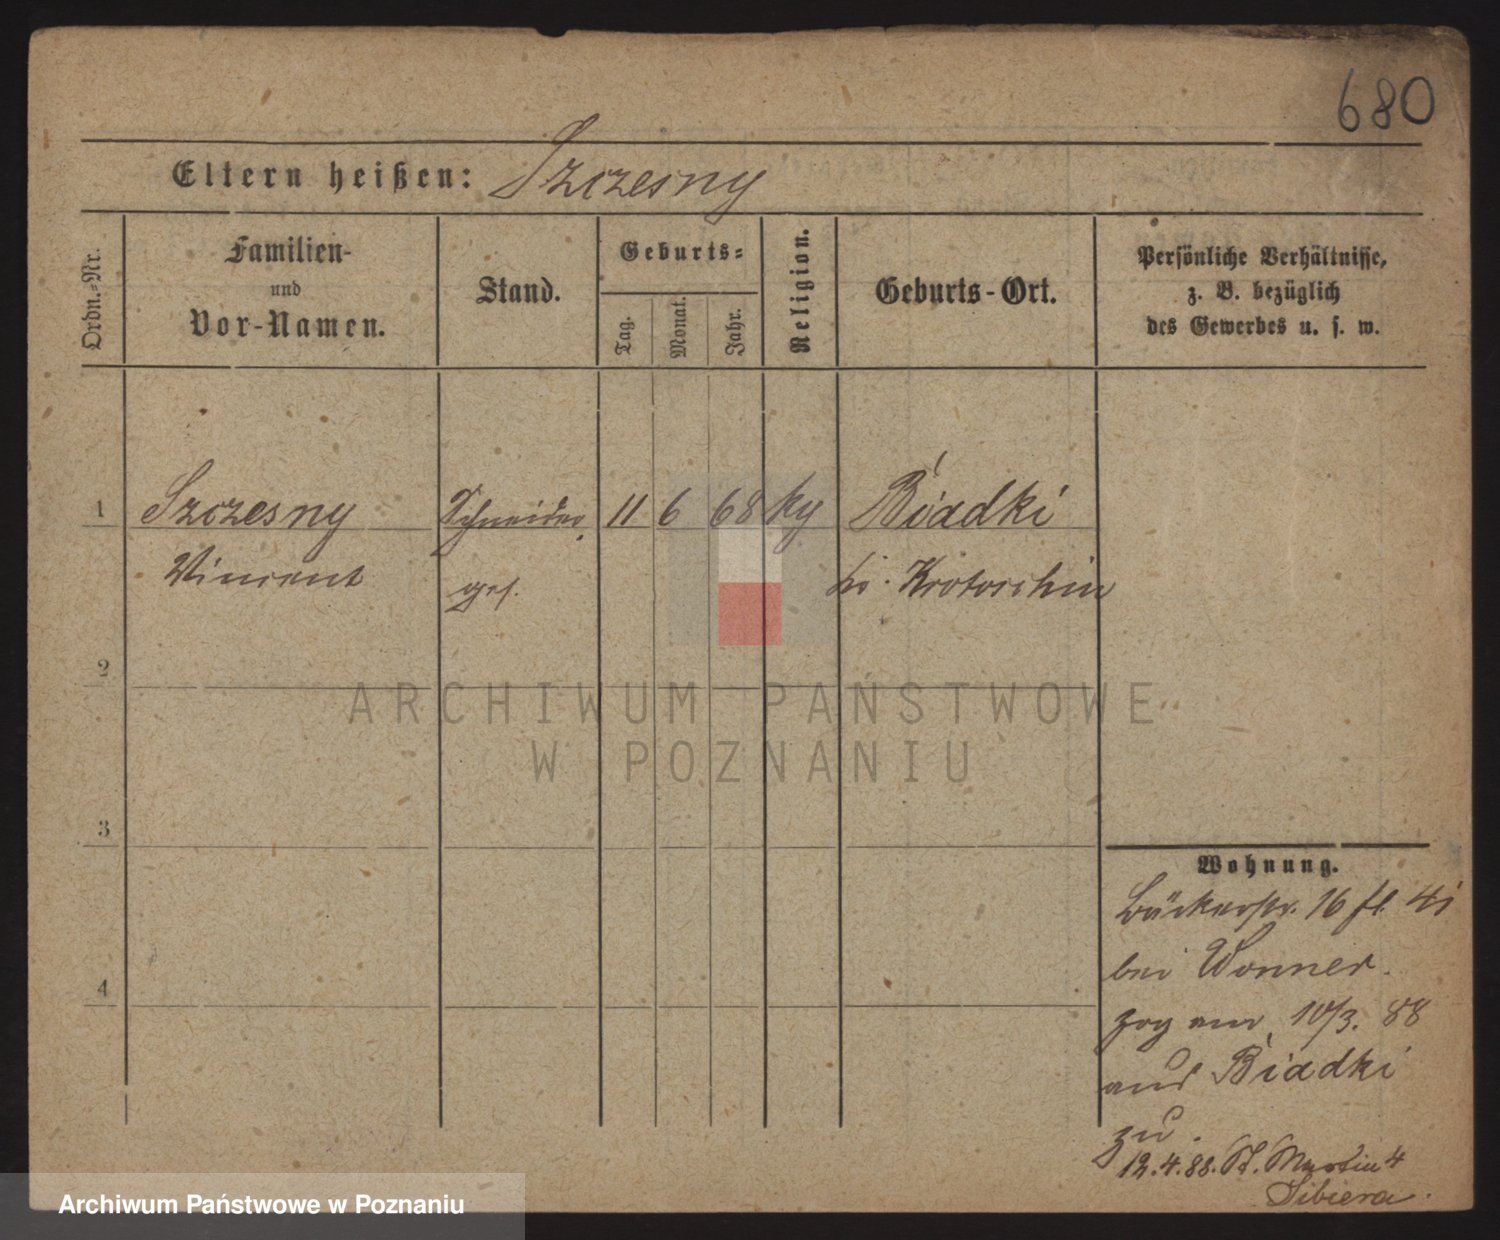 680
Eltern heißen: Szczesny
Ordn.-Nr.
Familien-
und
Vor-Namen.
Stand.
Geburts-
Tag.
Monat.
Jahr.
Religion.
Geburts-Ort.
Persönliche Verhältnisse,
z. B. bezüglich
des Gewerbes u. s. w.
1 Szczesny Schneider 11 6 68 ky Biadki
Vincent ges. Kr. Krotoschin
2
3
4
Wohnung.
Bäckerstr. 16 fl. 4i
bei Wonner.
zog am 10/3. 88
aus Biadki
zu.
12.4.88. St. Martin 4
Sibiera.
ARCHIWUM PAŃSTWOWE
W POZNANIU
Archiwum Państwowe w Poznaniu